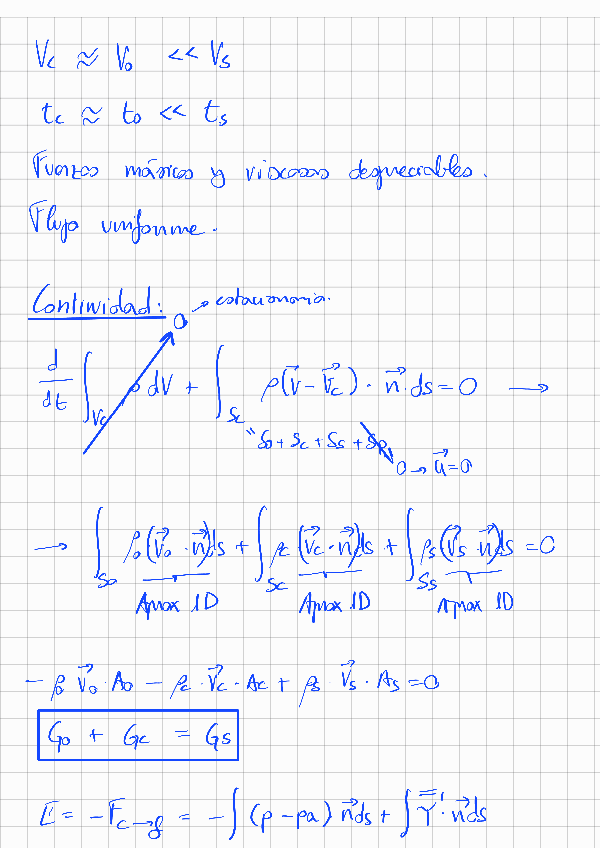 Vc ≈ Vo << Vs
tc ≈ to << ts
Fuerzas másicas y viscosas despreciables.
Flujo uniforme.
Continuidad: 0 → estacionario.
d/dt ∫_Vc ρ dV + ∫_Sc ρ(v⃗ - v⃗c) · n⃗ ds = 0 →
"So + Sc + Ss + SR
0 → u⃗ = 0
→ ∫_So ρo (v⃗o · n⃗) ds + ∫_Sc ρc (v⃗c · n⃗) ds + ∫_Ss ρs (v⃗s · n⃗) ds = 0
Aprox 1D Aprox 1D Aprox 1D
- ρo v⃗o · Ao - ρc · v⃗c · Ac + ρs v⃗s · As = 0
Go + Gc = Gs
E = -F_c→g = -∫ (p - pa) n⃗ ds + ∫ · n⃗ ds